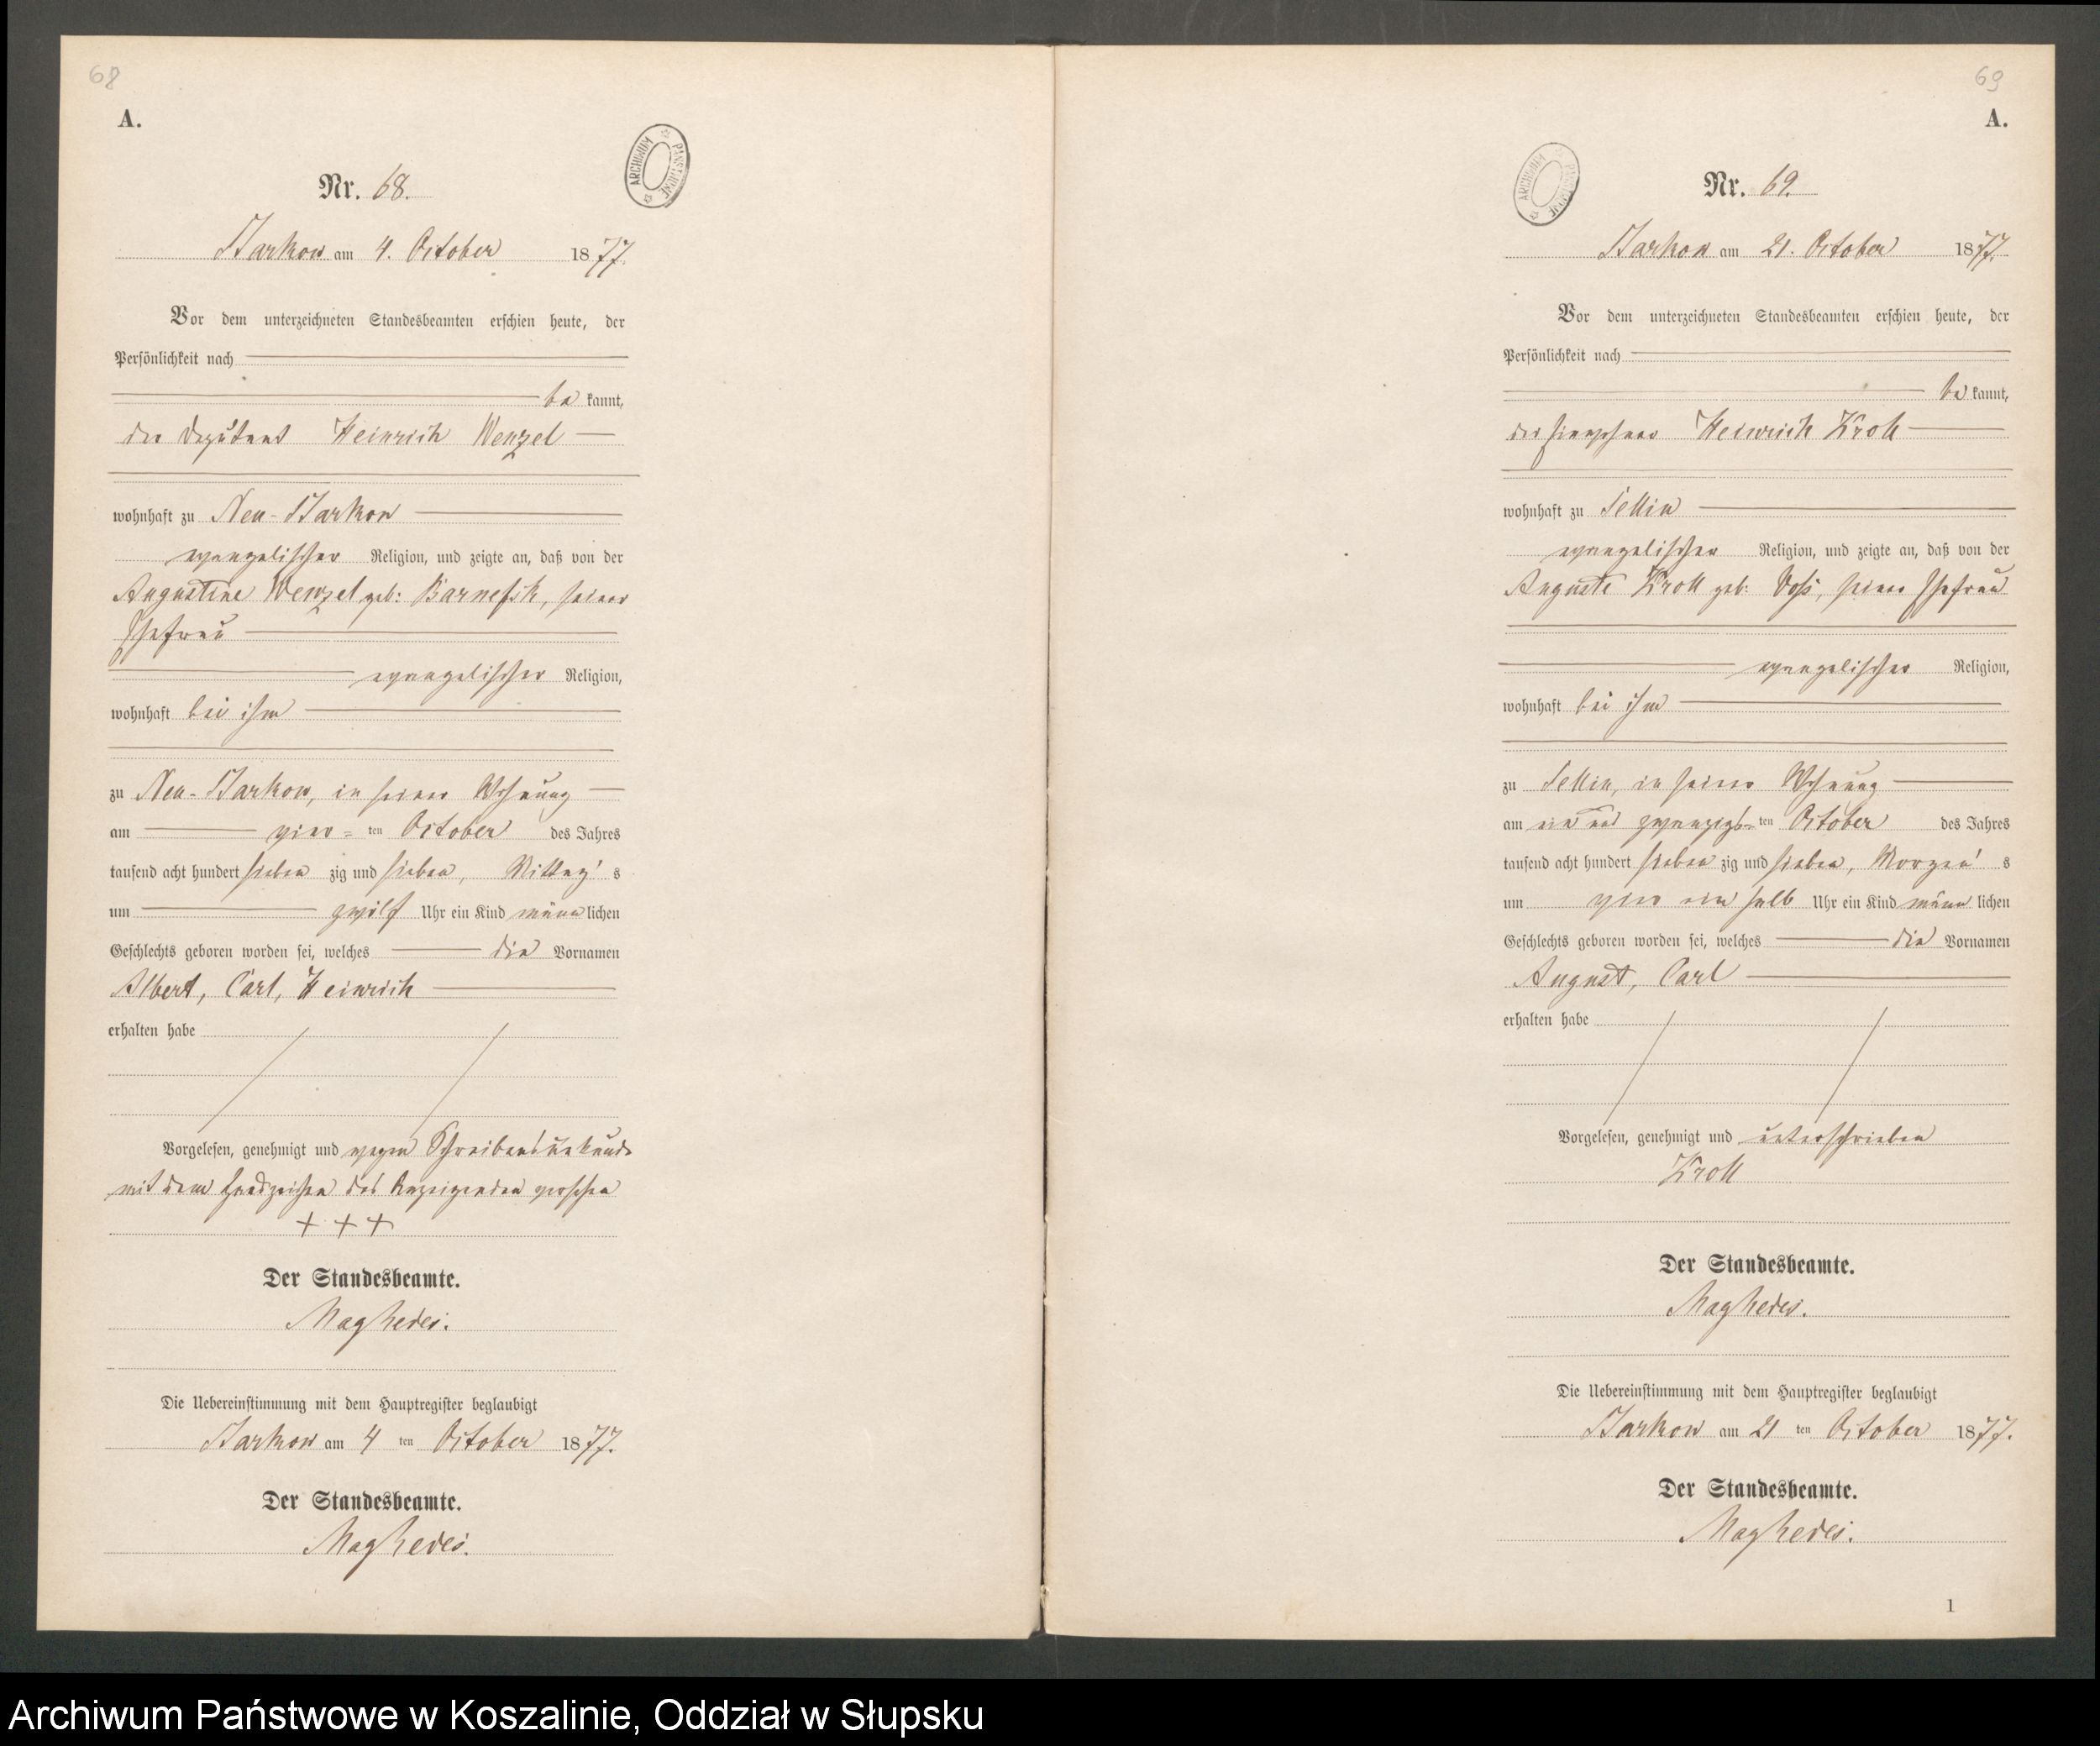 68
A.
ARCHIWUM PAŃSTWOWE
Nr. 68.
Starkow am 4. October 1877.
Vor dem unterzeichneten Standesbeamten erschien heute, der
Persönlichkeit nach
be kannt,
der Deputant Heinrich Wenzel
wohnhaft zu Neu-Starkow
evangelischer Religion, und zeigte an, daß von der
Augustine Wenzel geb: seiner
Ehefrau
evangelischer Religion,
wohnhaft bei ihm
zu Neu-Starkow, in seiner Wohnung
am vier= ten October des Jahres
tausend acht hundert sieben zig und sieben, Mittag' s
um zwölf Uhr ein Kind männ lichen
Geschlechts geboren worden sei, welches die Vornamen
Albert, Carl, Heinrich
erhalten habe
Vorgelesen, genehmigt und wegen Schreibensunkunde
mit dem Handzeichen des Anzeigenden versehen
+++
Der Standesbeamte.
Die Uebereinstimmung mit dem Hauptregister beglaubigt
Starkow am 4 ten October 1877.
Der Standesbeamte.
69
A.
ARCHIWUM PAŃSTWOWE
Nr. 69.
Starkow am 21. October 1877.
Vor dem unterzeichneten Standesbeamten erschien heute, der
Persönlichkeit nach
be kannt,
der Heinrich Kroll
wohnhaft zu Sellin
evangelischer Religion, und zeigte an, daß von der
Auguste Kroll geb: Voß, seiner Ehefrau
evangelischer Religion,
wohnhaft bei ihm
zu Sellin, in seiner Wohnung
am ein und zwanzigs= ten October des Jahres
tausend acht hundert sieben zig und sieben, Morgen' s
um vier ein halb Uhr ein Kind männ lichen
Geschlechts geboren worden sei, welches die Vornamen
August, Carl
erhalten habe
Vorgelesen, genehmigt und unterschrieben
Kroll
Der Standesbeamte.
Die Uebereinstimmung mit dem Hauptregister beglaubigt
Starkow am 21 ten October 1877.
Der Standesbeamte.
1
Archiwum Państwowe w Koszalinie, Oddział w Słupsku